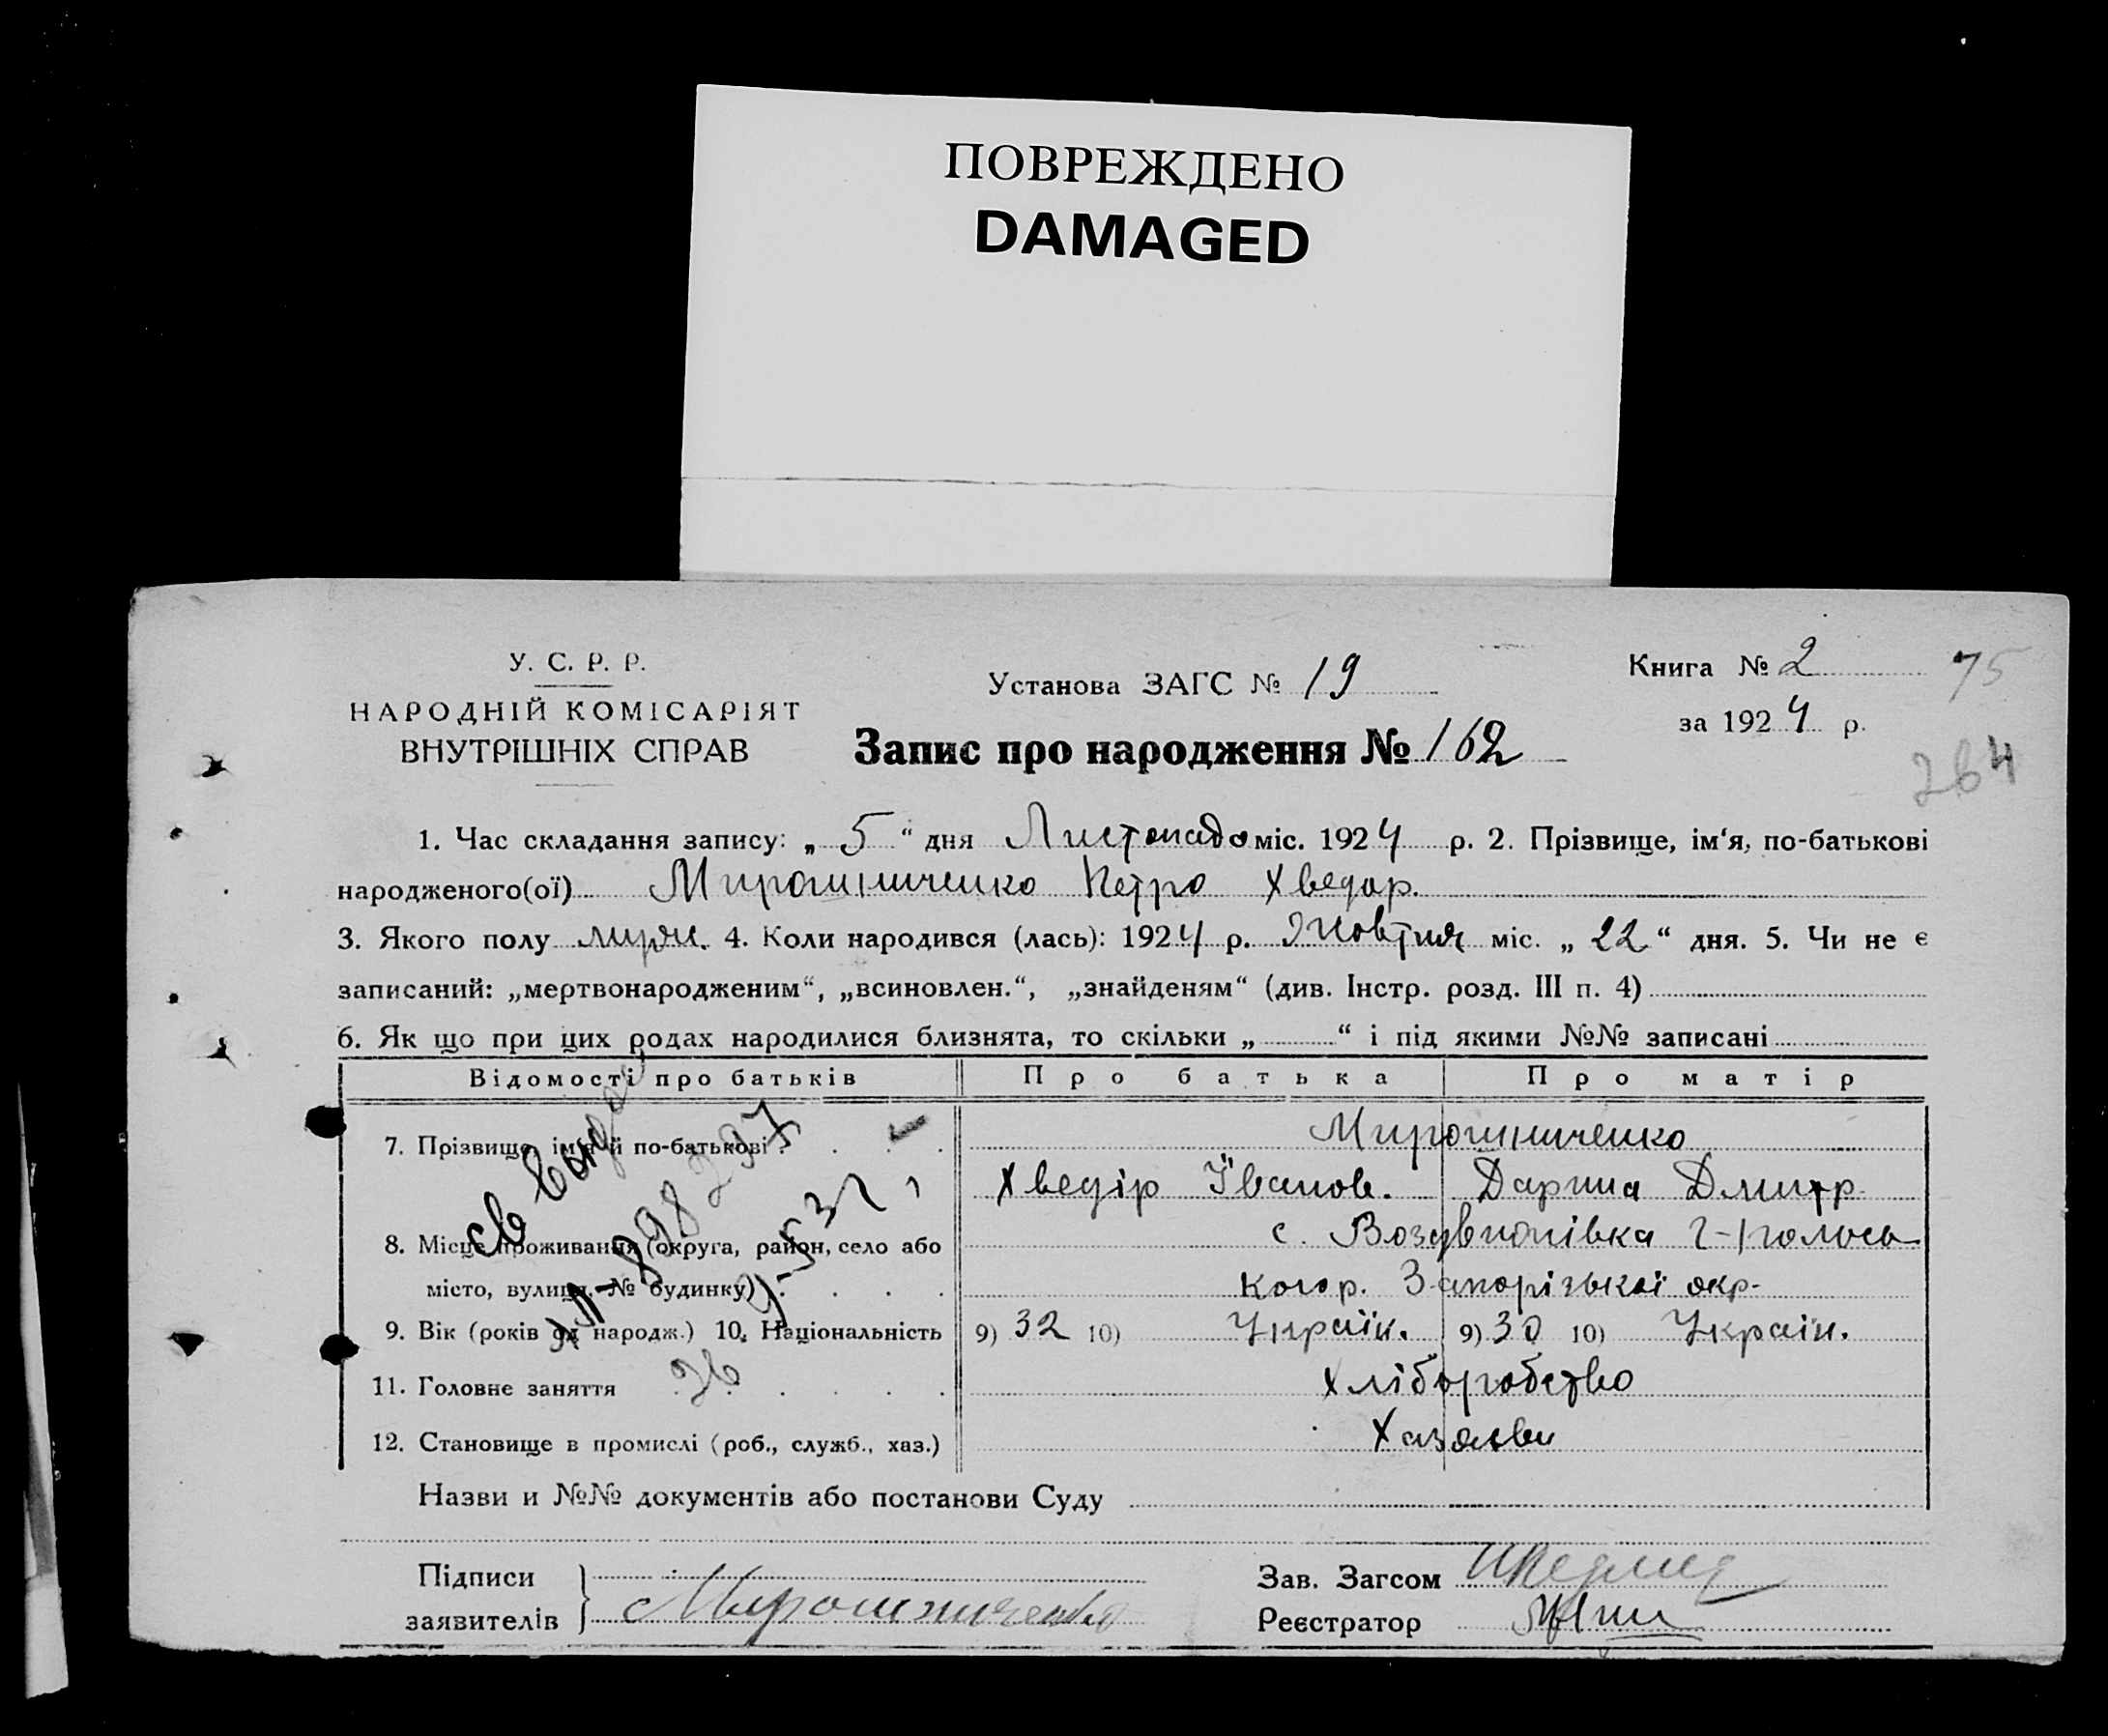 ПОВРЕЖДЕНО
DAMAGED
У. С. Р. Р.
НАРОДНІЙ КОМІСАРІЯТ
ВНУТРІШНІХ СПРАВ
Установа ЗАГС № 19
Книга № 2
75
за 1924 р.
Запис про народження № 162
264
1. Час складання запису: „5“ дня Листопада міс. 1924 р. 2. Прізвище, ім‘я, по-батькові
народженого(ої) Мирошниченко Петро Хведор.
3. Якого полу 4. Коли народився (лась): 1924 р. Жовтня міс. „22“ дня. 5. Чи не є
записаний: „мертвонародженим“, „всиновлен.“, „знайденям“ (див. Інстр. розд. III п. 4)
6. Як що при цих родах народилися близнята, то скільки „ “ і під якими №№ записані
Відомості про батьків Про батька Про матір
7. Прізвище, ім‘я й по-батькові Мирошниченко
Хведір Їванов. Дарина Дмитр.
8. Місце проживання (округа, район, село або с. Воздвиженівка
місто, вулиця, № будинку) Запорізької окр.
9. Вік (років од народж.) 10. Національність 9) 32 10) Україн. 9) 30 10) Україн.
11. Головне заняття Хліборобство
12. Становище в промислі (роб., служб., хаз.) Хазяєви
Назви и №№ документів або постанови Суду
Підписи
заявителів Мирошниченко
Зав. Загсом
Реєстратор